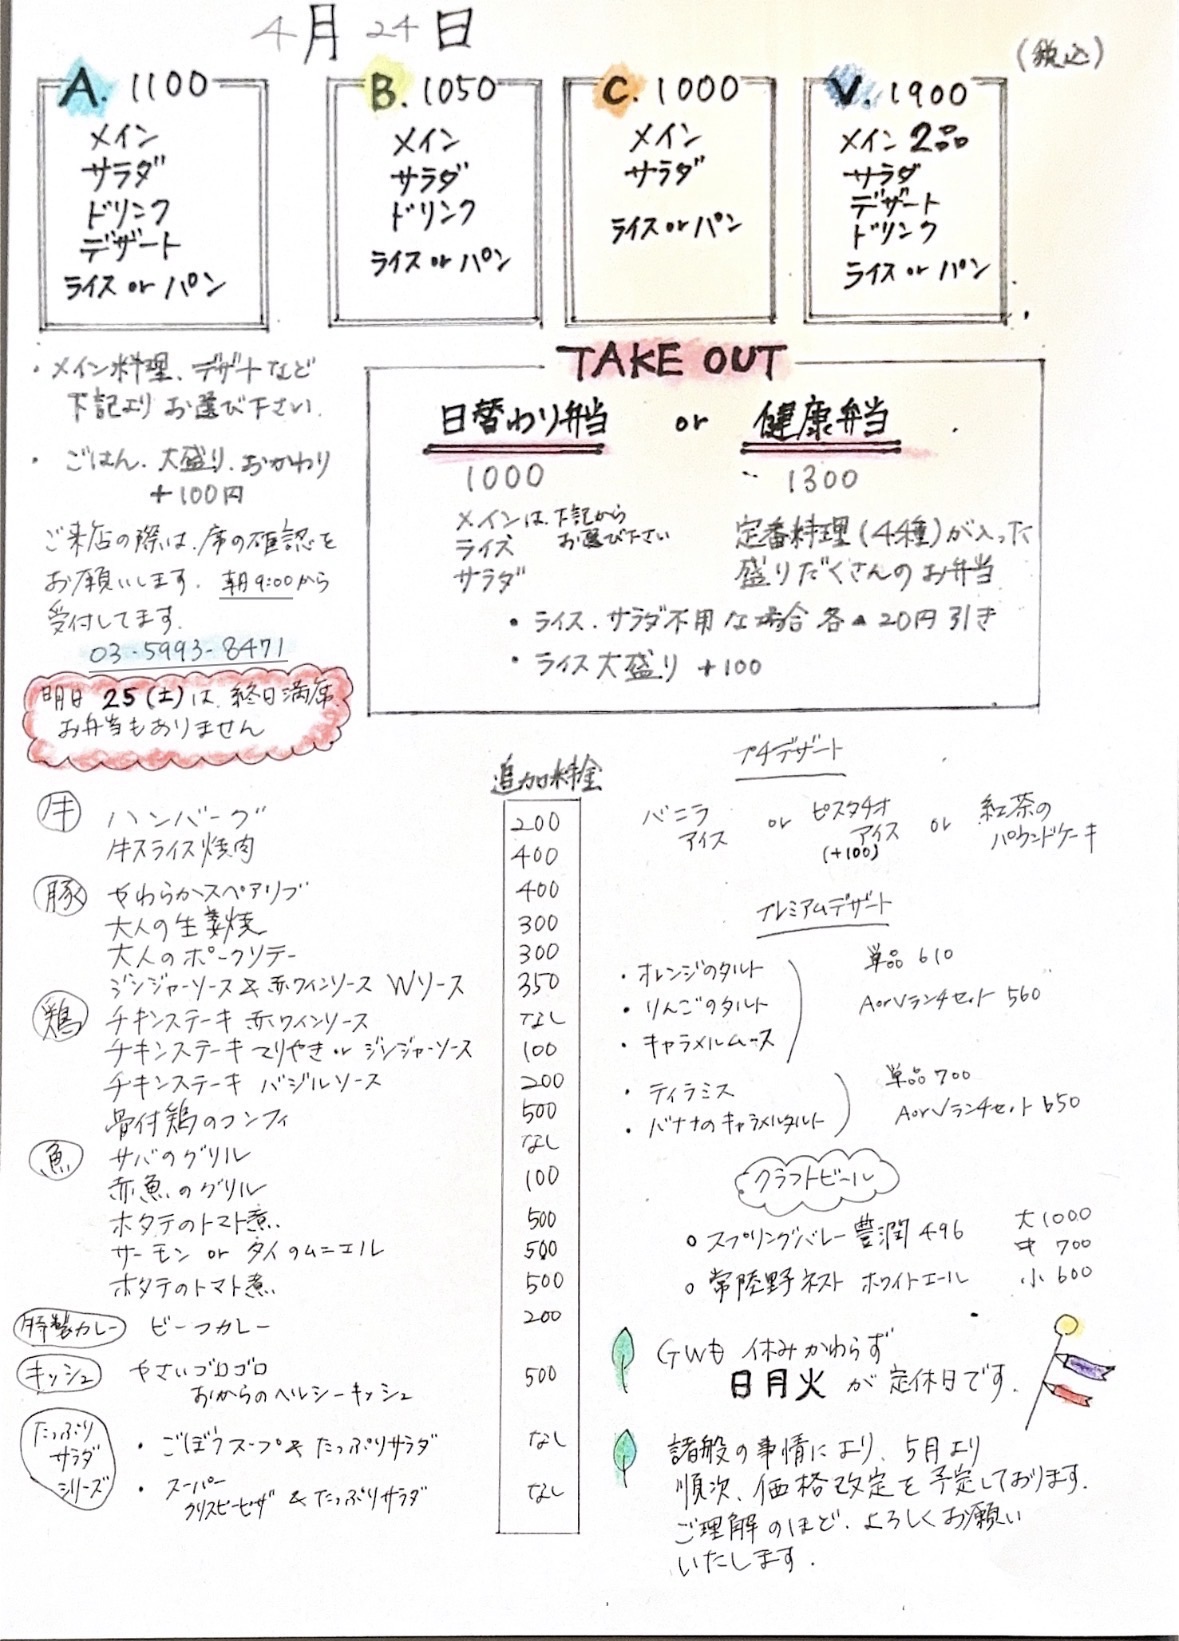 4月24日
(税込)
A. 1100
メイン
サラダ
ドリンク
デザート
ライス or パン
B. 1050
メイン
サラダ
ドリンク
ライス or パン
C. 1000
メイン
サラダ
ライス or パン
V. 1900
メイン 2品
サラダ
デザート
ドリンク
ライス or パン
・メイン料理、デザートなど
下記よりお選び下さい.
・ごはん、大盛り、おかわり
+100円
ご来店の際は、席の確認を
お願いします. 朝9:00から
受付してます.
03-5993-8471
明日 25(土)は、終日満席、
お弁当もありません
TAKE OUT
日替わり弁当 or 健康弁当
1000
メインは、下記から
お選び下さい
ライス
サラダ
1300
定番料理(4種)が入った
盛りだくさんのお弁当
・ライス、サラダ不用な場合 各▲20円引き
・ライス大盛り +100
追加料金
牛 ハンバーグ 200
牛スライス焼肉 400
豚 やわらかスペアリブ 400
大人の生姜焼 300
大人のポークソテー 300
ジンジャーソース & 赤ワインソース Wソース 350
鶏 チキンステーキ 赤ワインソース なし
チキンステーキ てりやき or ジンジャーソース 100
チキンステーキ バジルソース 200
骨付鶏のコンフィ 500
魚 サバのグリル なし
赤魚のグリル 100
ホタテのトマト煮 500
サーモン or タイのムニエル 500
ホタテのトマト煮 500
特製カレー ビーフカレー 200
キッシュ やさいゴロゴロ
おからのヘルシーキッシュ 500
たっぷり
サラダ
シリーズ
・ごぼうスープ & たっぷりサラダ なし
・スーパー
クリスピーピザ & たっぷりサラダ なし
プチデザート
バニラ
アイス
or
ピスタチオ
アイス
(+100)
or
紅茶の
パウンドケーキ
プレミアムデザート
・オレンジのタルト
・りんごのタルト
・キャラメルムース
単品 610
AorVランチセット 560
・ティラミス
・バナナのキャラメルタルト
単品 700
AorVランチセット 650
クラフトビール
○ スプリングバレー 豊潤 496
○ 常陸野ネスト ホワイトエール
大 1000
中 700
小 600
GWも 休みかわらず
日月火 が 定休日です.
諸般の事情により、5月より
順次、価格改定を予定しております.
ご理解のほど、よろしくお願い
いたします.